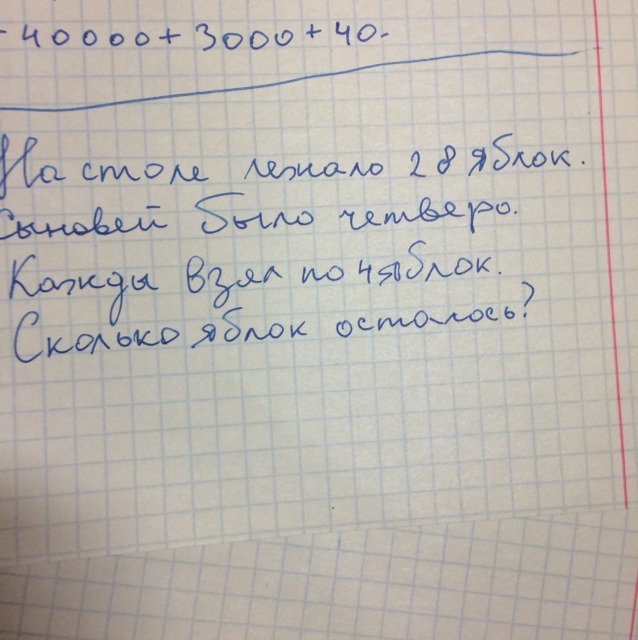 - 40000 + 3000 + 40.
На столе лежало 28 яблок.
Сыновей было четверо.
Кажды взял по 4 яблок.
Сколько яблок осталось?